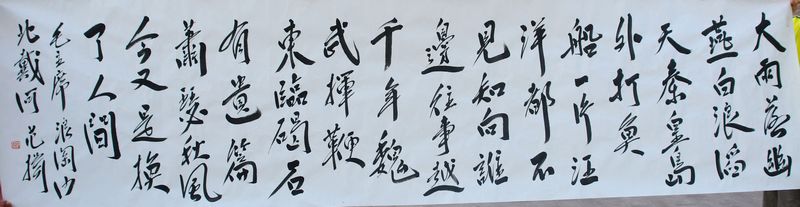 大雨落幽
燕白浪滔
天秦皇島
外打魚
船一片汪
洋都不
見知向誰
邊往事越
千年魏
武揮鞭
東臨碣石
有遺篇
蕭瑟秋風
今又是換
了人間
毛主席 浪淘沙
北戴河 范